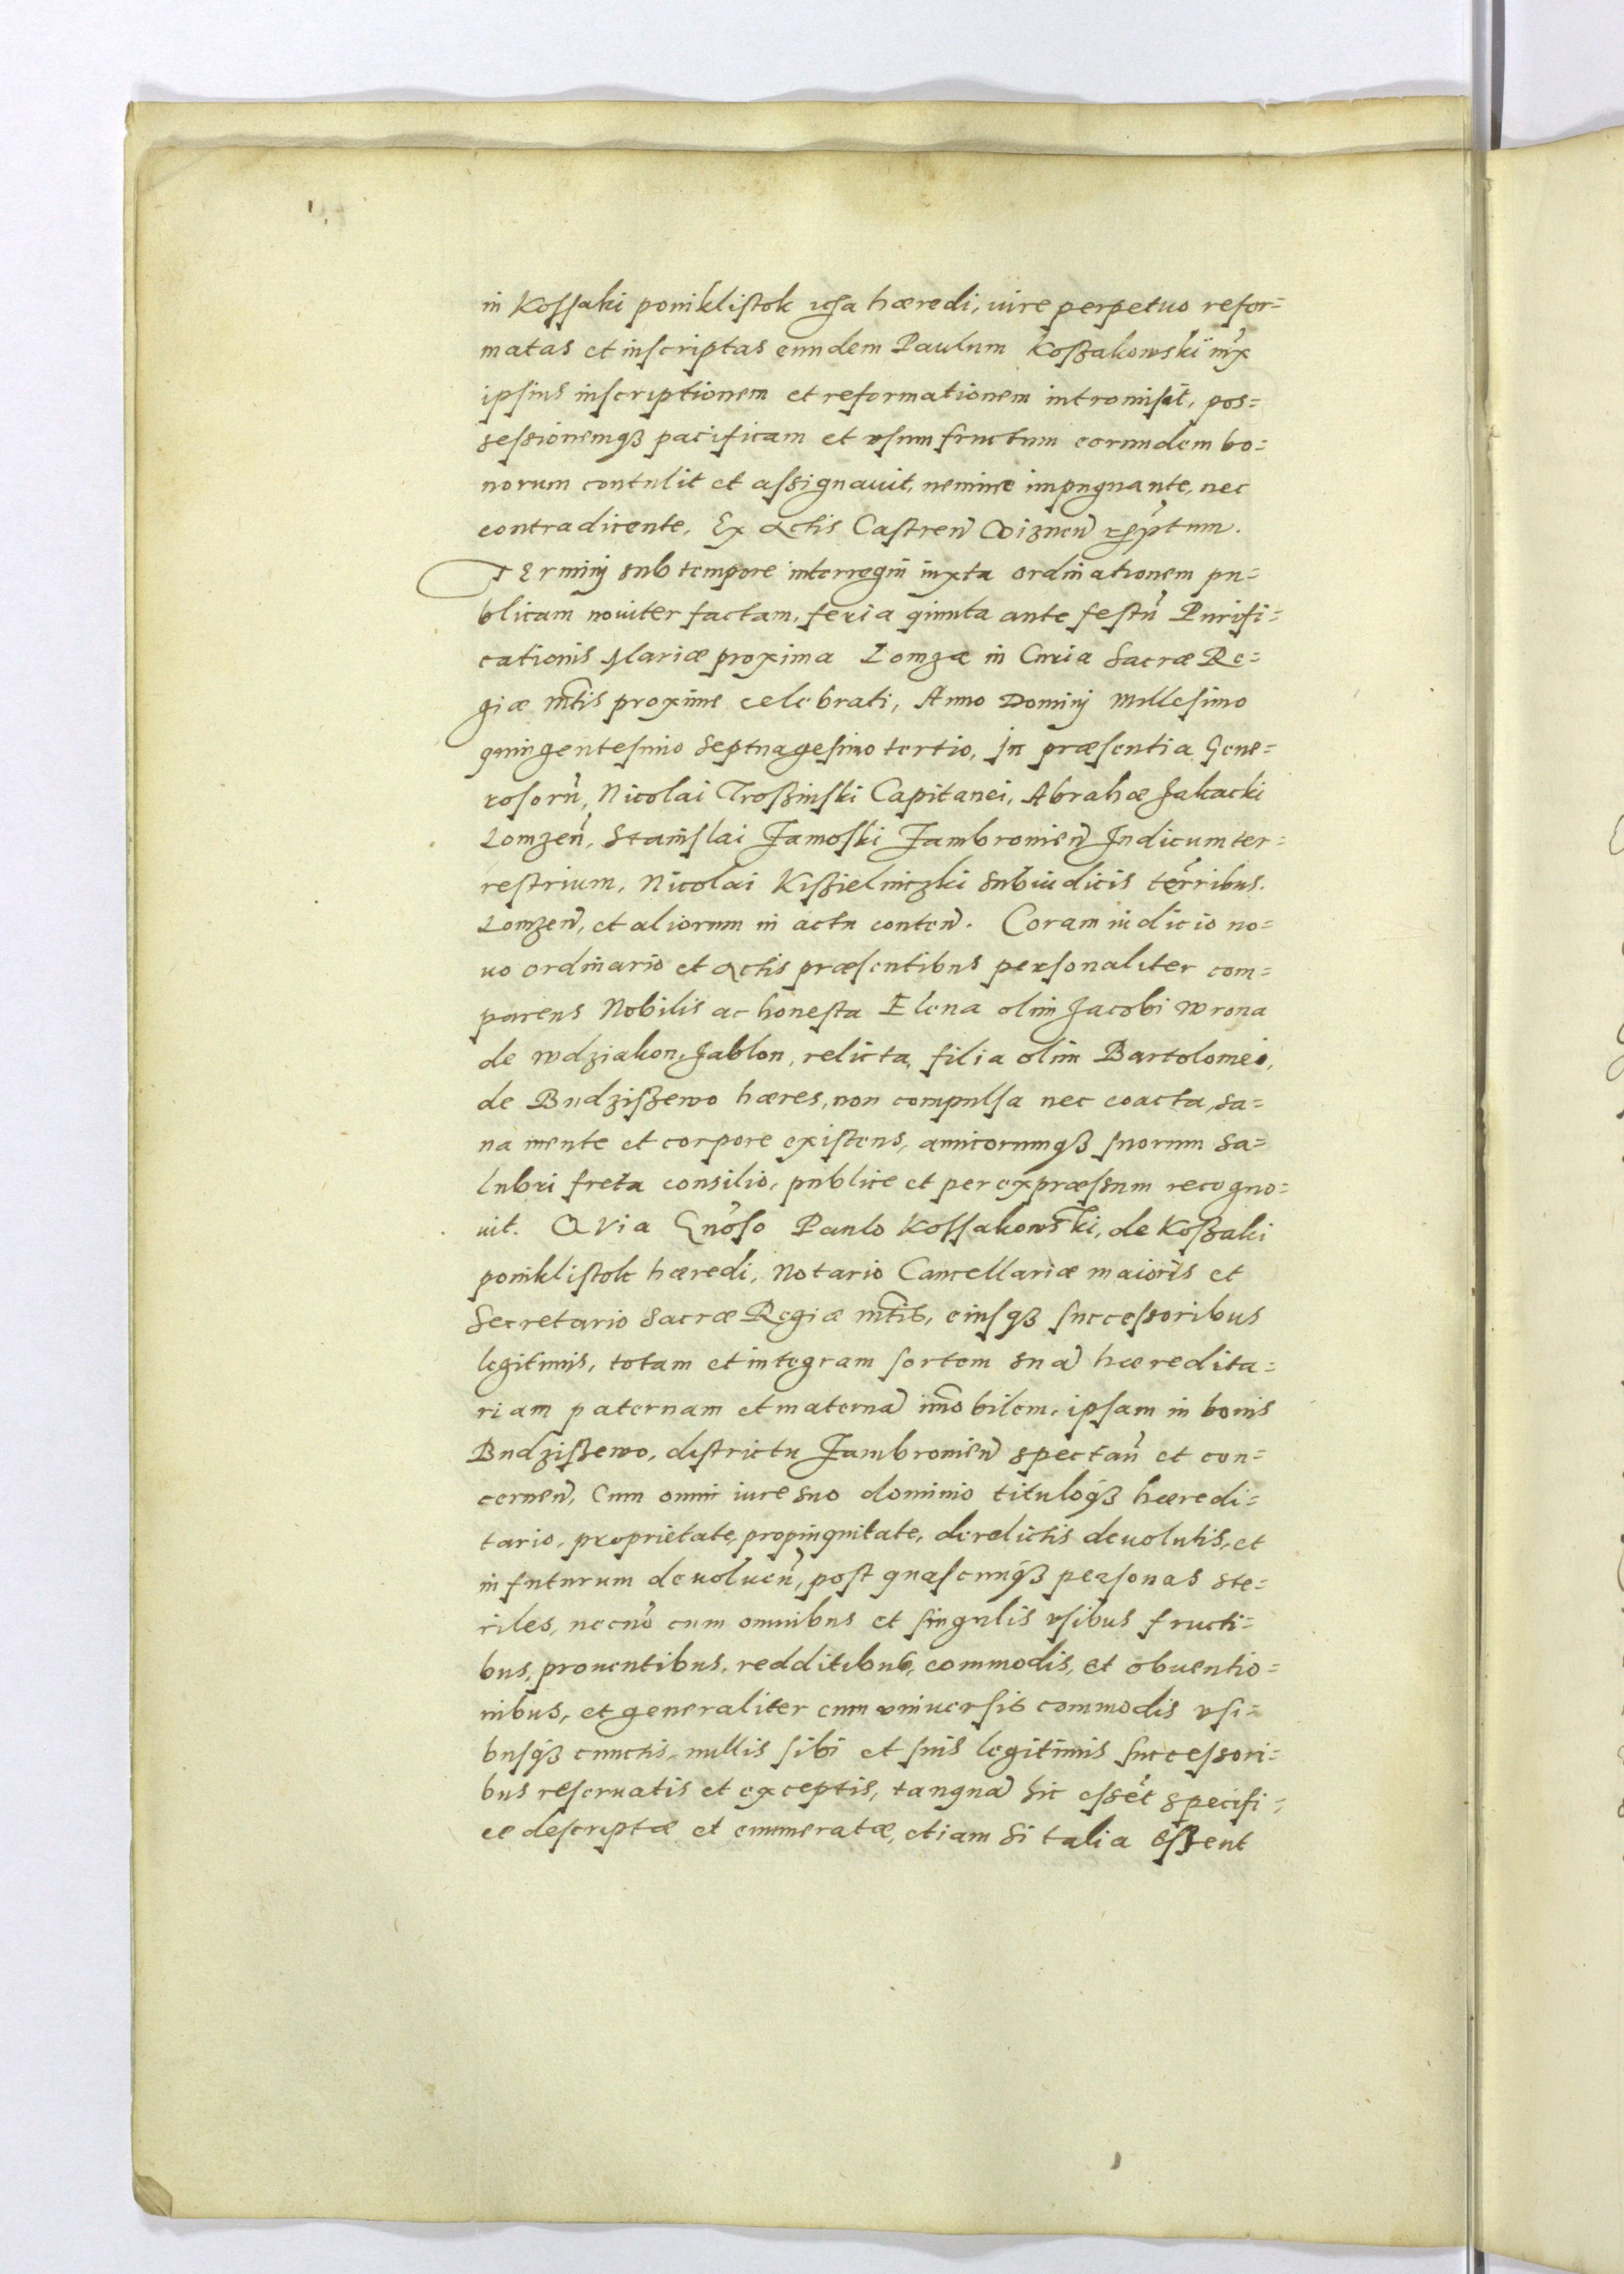 in Kossaki ponikłistok ipsa hæredi, iure perpetuo refor=
matas et inscriptas eundem Paulum Koszakowski iux̃
ipsius inscriptionem et reformationem intromisit, pos=
sessionemqȝ pacificam et vsumfructum eorundem bo=
norum contulit et assignauit, nemine impugnante, nec
contradicente, Ex Actis Castreñ Wizneñ
Terminj sub tempore interregni iuxta ordinationem pu=
blicam nouiter factam, feria quinta ante festũ Purifi=
cationis Mariæ proxima Lomzæ in Curia Sacræ Re=
giæ Mtis proxime celebrati, Anno Dominj Millesimo
quingentesimo Septuagesimo tertio, In præsentia Gene=
rosorũ, Nicolai Troszinski Capitanei, Abrahæ Jakacki
Lomzeñ, Stanislai Zamoski Zambrouieñ Iudicum ter=
restrium, Nicolai Kiszielniczki Subiudicis terribus.
Lomzeñ, et aliorum in actu conteñ. Coram iudicio no=
uo ordinario et Actis præsentibus personaliter com=
parens Nobilis ac honesta Elena olim Jacobi Wrona
de Wdziakon Jablon, relicta, filia olim Bartolomei,
de Budziszewo hæres, non compulsa nec coacta, sa=
na mente et corpore existens, amicorumqȝ suorum sa=
lubri freta consilio, publice et per expræssum recogno=
uit. Qvia Gnõso Paulo Kossakowski, de Koszaki
poniklistok hæredi, Notario Cancellariæ maioris et
Secretario Sacræ Regiæ Mtis, eiusqȝ successoribus
legitimis, totam et integram sortem suã hæredita=
riam paternam et maternã imõbilem, ipsam in bonis
Budziszewo, districtu Zambrouieñ spectañ et con=
cerneñ, Cum omni iure suo dominio tituloqȝ hæredi=
tario, proprietate, propinquitate, derelictis deuolutis, et
in futurum deuolueñ, post quascunqȝ personas ste=
riles, necnõ cum omnibus et singulis vsibus fructi=
bus, prouentibus, redditibus, commodis, et obuentio=
nibus, et generaliter cum vniuersis commodis vsi=
busqȝ cunctis, nullis sibi et suis legitimis successori=
bus reseruatis et exceptis, tanquã hic essẽt specifi=
ce descriptæ et enumeratæ, etiam si talia essent